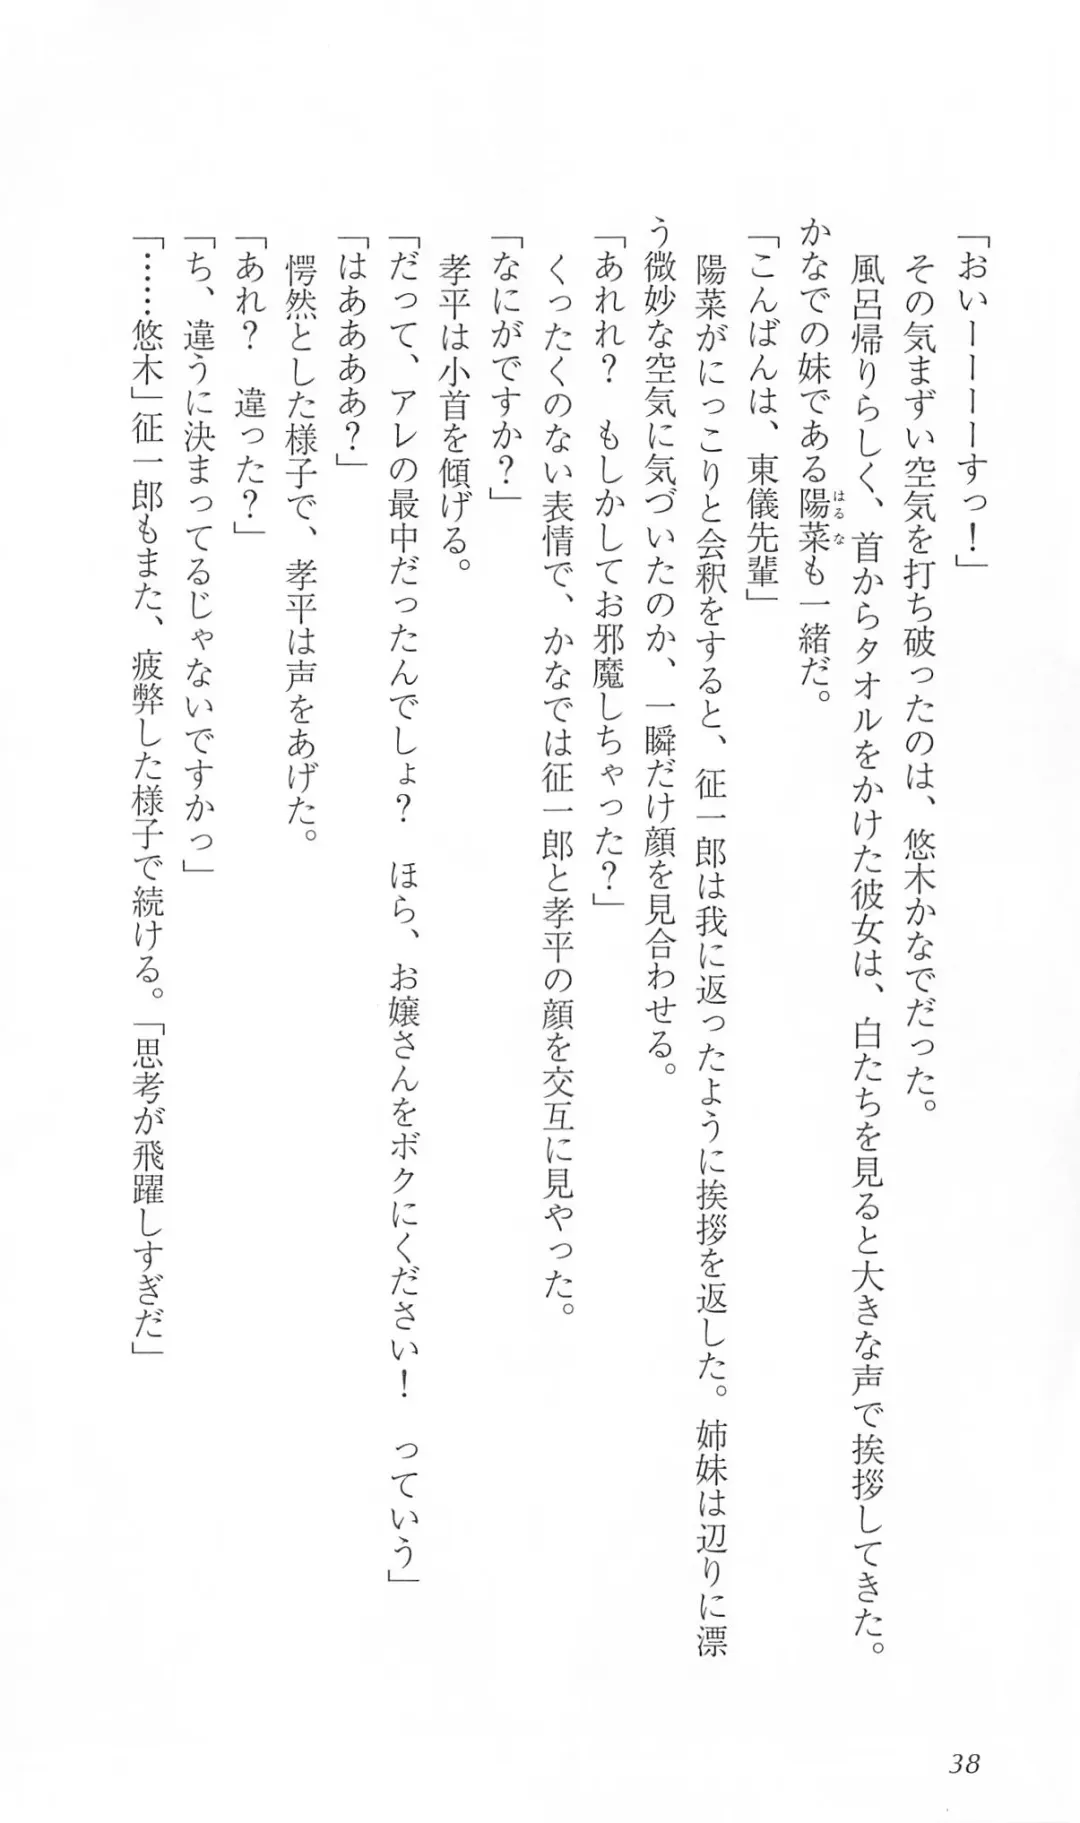 「おいーーーーすっ！」
　その気まずい空気を打ち破ったのは、悠木かなでだった。
　風呂帰りらしく、首からタオルをかけた彼女は、白たちを見ると大きな声で挨拶してきた。
かなでの妹である陽菜も一緒だ。
はるな
「こんばんは、東儀先輩」
　陽菜がにっこりと会釈をすると、征一郎は我に返ったように挨拶を返した。姉妹は辺りに漂
う微妙な空気に気づいたのか、一瞬だけ顔を見合わせる。
「あれれ？　もしかしてお邪魔しちゃった？」
　くったくのない表情で、かなでは征一郎と孝平の顔を交互に見やった。
「なにがですか？」
　孝平は小首を傾げる。
「だって、アレの最中だったんでしょ？　ほら、お嬢さんをボクにください！　っていう」
「はああああ？」
　愕然とした様子で、孝平は声をあげた。
「あれ？　違った？」
「ち、違うに決まってるじゃないですかっ」
「……悠木」征一郎もまた、疲弊した様子で続ける。「思考が飛躍しすぎだ」
38